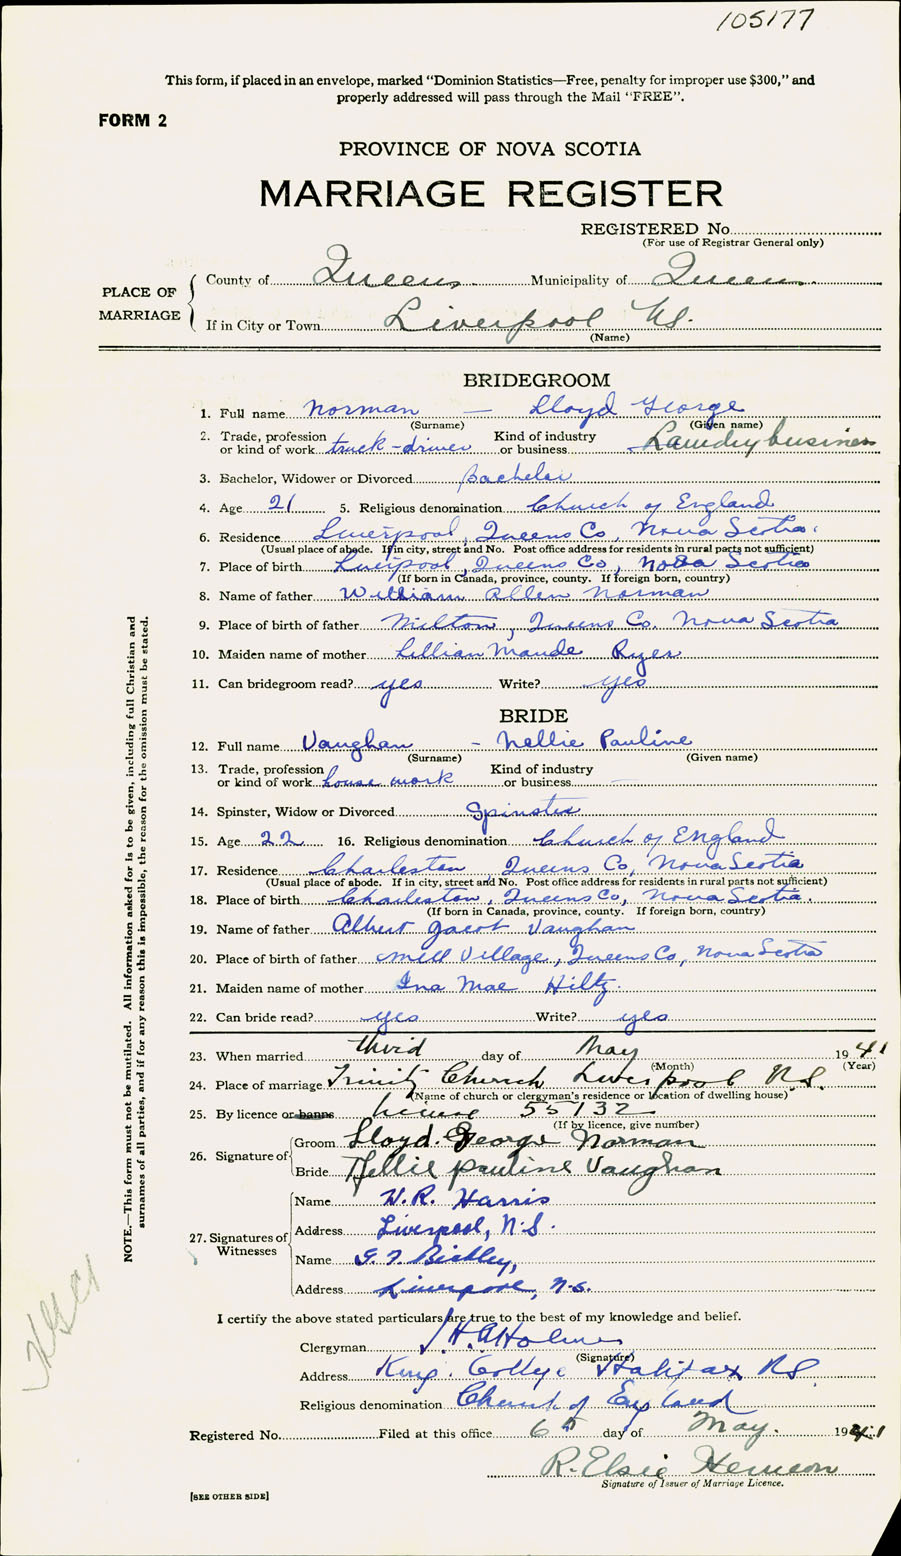 105177
This form, if placed in an envelope, marked "Dominion Statistics—Free, penalty for improper use $300," and
properly addressed will pass through the Mail "FREE".
FORM 2
PROVINCE OF NOVA SCOTIA
MARRIAGE REGISTER
REGISTERED No
(For use of Registrar General only)
PLACE OF MARRIAGE
County of Queens Municipality of Queens
If in City or Town Liverpool N.S.
(Name)
BRIDEGROOM
1. Full name Norman — Lloyd George
(Surname) (Given name)
2. Trade, profession or kind of work truck-driver Kind of industry or business Laundry business
3. Bachelor, Widower or Divorced Bachelor
4. Age 21 5. Religious denomination Church of England
6. Residence Liverpool, Queens Co, Nova Scotia
(Usual place of abode. If in city, street and No. Post office address for residents in rural parts not sufficient)
7. Place of birth Liverpool, Queens Co, Nova Scotia
(If born in Canada, province, county. If foreign born, country)
8. Name of father William Allen Norman
9. Place of birth of father Milton, Queens Co. Nova Scotia
10. Maiden name of mother Lillian Maude Ryer
11. Can bridegroom read? yes Write? yes
BRIDE
12. Full name Vaughan - Nellie Pauline
(Surname) (Given name)
13. Trade, profession or kind of work house work Kind of industry or business —
14. Spinster, Widow or Divorced Spinster
15. Age 22 16. Religious denomination Church of England
17. Residence Charleston Queens Co, Nova Scotia
(Usual place of abode. If in city, street and No. Post office address for residents in rural parts not sufficient)
18. Place of birth Charleston, Queens Co, Nova Scotia.
(If born in Canada, province, county. If foreign born, country)
19. Name of father Albert Jacob Vaughan
20. Place of birth of father Mill Village, Queens Co, Nova Scotia
21. Maiden name of mother Ina Mae Hiltz.
22. Can bride read? yes Write? yes
23. When married third day of May 1941
(Month) (Year)
24. Place of marriage Trinity Church Liverpool N.S.
(Name of church or clergyman's residence or location of dwelling house)
25. By licence or banns license 55132
(If by licence, give number)
26. Signature of
Groom Lloyd George Norman
Bride Nellie Pauline Vaughan
27. Signatures of Witnesses
Name H.R. Harris
Address Liverpool, N.S.
Name
Address Liverpool, N.S.
I certify the above stated particulars are true to the best of my knowledge and belief.
Clergyman
(Signature)
Address Kings College Halifax NS
Religious denomination Church of England
Registered No. Filed at this office 6th day of May. 1941
R. Elsie
Signature of Issuer of Marriage Licence.
[SEE OTHER SIDE]
NOTE.—This form must not be mutilated. All information asked for is to be given, including full Christian and
surnames of all parties, and if for any reason this is impossible, the reason for the omission must be stated.